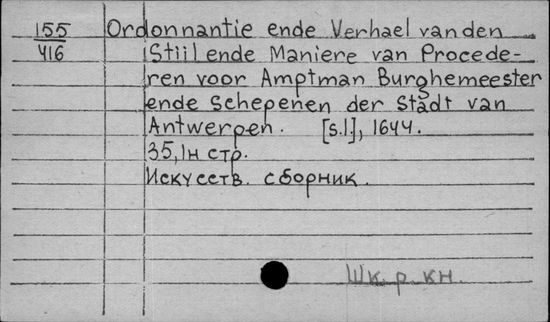 155 Ordonnantie ende Verhael van den
416 Stiil ende Maniere van Procede-
ren voor Amptman Burghemeester
ende Schepenen der Stadt van
Antwerpen. [s.l], 1644.
35, 1н стр.
Искусств. сборник.
Шк. р. кн.